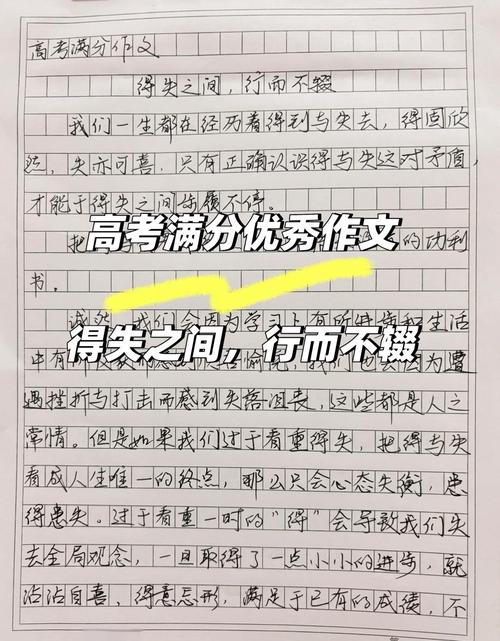 高考满分作文
得失之间，行而不辍
我们一生都在经历着得到与失去，得固欣
然，失亦可喜。只有正确认识得与失这对矛盾，
才能于得失之间步履不停。
高考满分优秀作文
的功利
书。
诚然，我们会因为学习上有所
和生活
得失之间，行而不辍
中有所
们也会因为遭
遇挫折与打击而感到失落沮丧，这些都是人之
常情。但是如果我们过于看重得失，把得与失
看成人生唯一的终点，那么只会心态失衡，患
得患失。过于看重一时的“得”会导致我们失
去全局观念，一旦取得了一点小小的进步，就
沾沾自喜，得意忘形，满足于已有的成绩，不